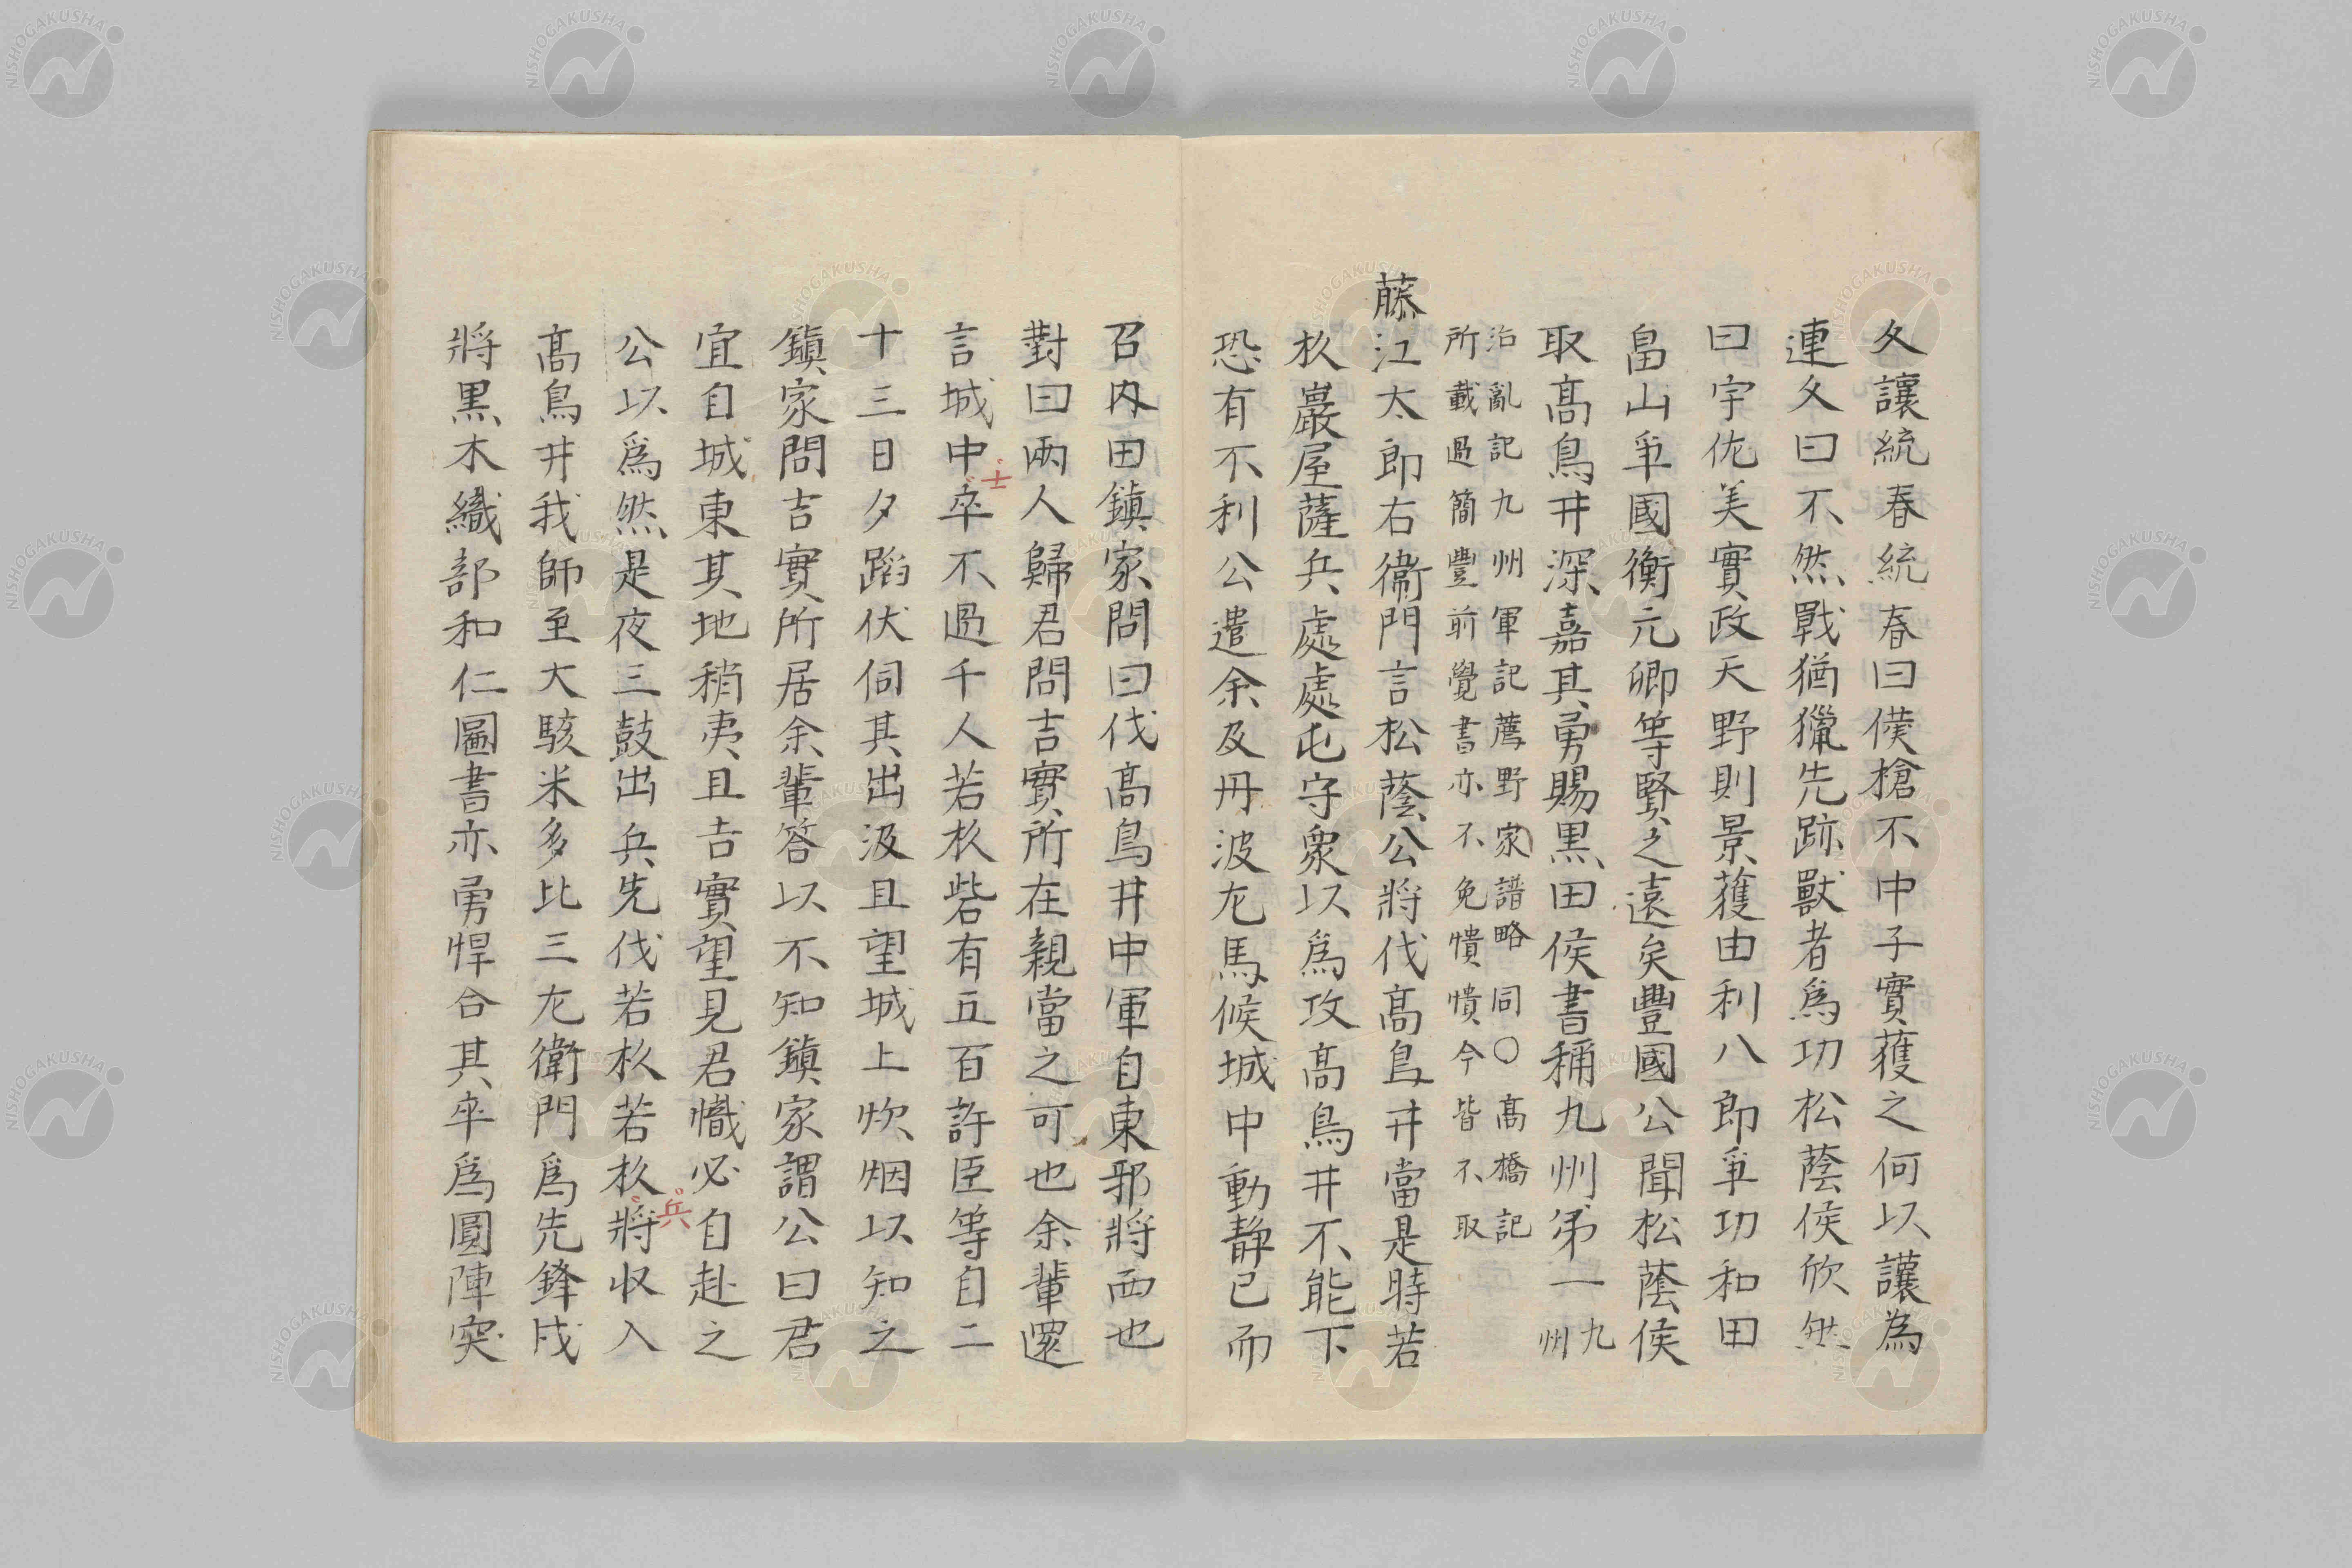 久讓統春統春曰僕槍不中子實獲之何以讓為
連久曰不然戰猶獵先跡獸者爲功松蔭侯欣然
曰宇佐美實政天野則景獲由利八郎爭功和田
畠山爭國衡元卿等賢之遠矣豐國公聞松蔭侯
取髙鳥井深嘉其勇賜黒田侯書稱九州第一九州
治亂記九州軍記薦野家譜略同〇髙橋記
所載過簡豐前覺書亦不免憒憒今皆不取
藤江太郎右衞門言松蔭公將伐髙鳥井當是時若
杦巖屋薩兵處處屯守衆以爲攻髙鳥井不能下
恐有不利公遣余及丹波左馬候城中動静已而
召内田鎮家問曰伐髙鳥井中軍自東邪將西也
對曰兩人歸君問吉實所在親當之可也余輩還
言城中卒不過千人若杦砦有五百許臣等自二
士
十三日夕蹈伏伺其出汲且望城上炊烟以知之
鎮家問吉實所居余輩答以不知鎮家謂公曰君
宜自城東其地稍夷且吉實望見君幟必自赴之
公以爲然是夜三鼓出兵先伐若杦若杦將收入
兵
髙鳥井我師至大駭米多比三左衛門爲先鋒戍
將黒木織部和仁圖書亦勇悍合其卒爲圓陣突